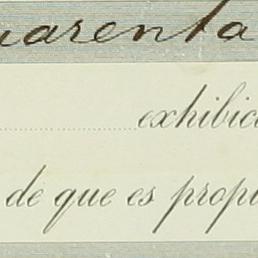 uarenta
exhibic
de que es propi